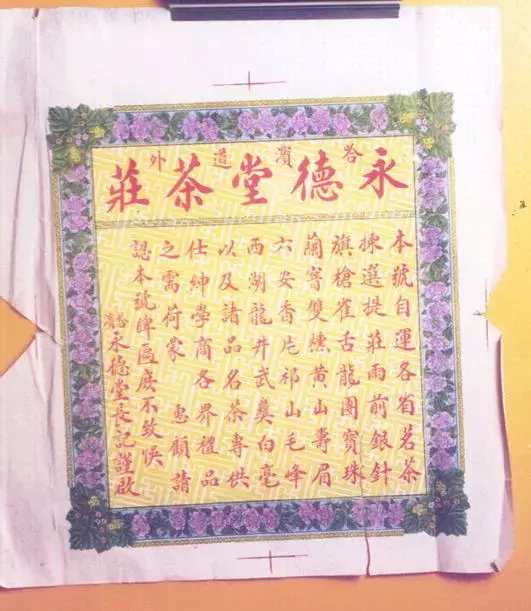 哈濱道外
永德堂茶莊
本號自運各省茗茶
揀選提莊雨前銀針
旗槍雀舌龍團寶珠
蘭窨雙燻黃山壽眉
六安香片祁山毛峰
西湖龍井武彝白毫
以及諸品名茶專供
仕紳學商各界禮品
之需荷蒙 惠顧請
認本號牌匾庶不致悞
哈濱永德堂長記謹啟